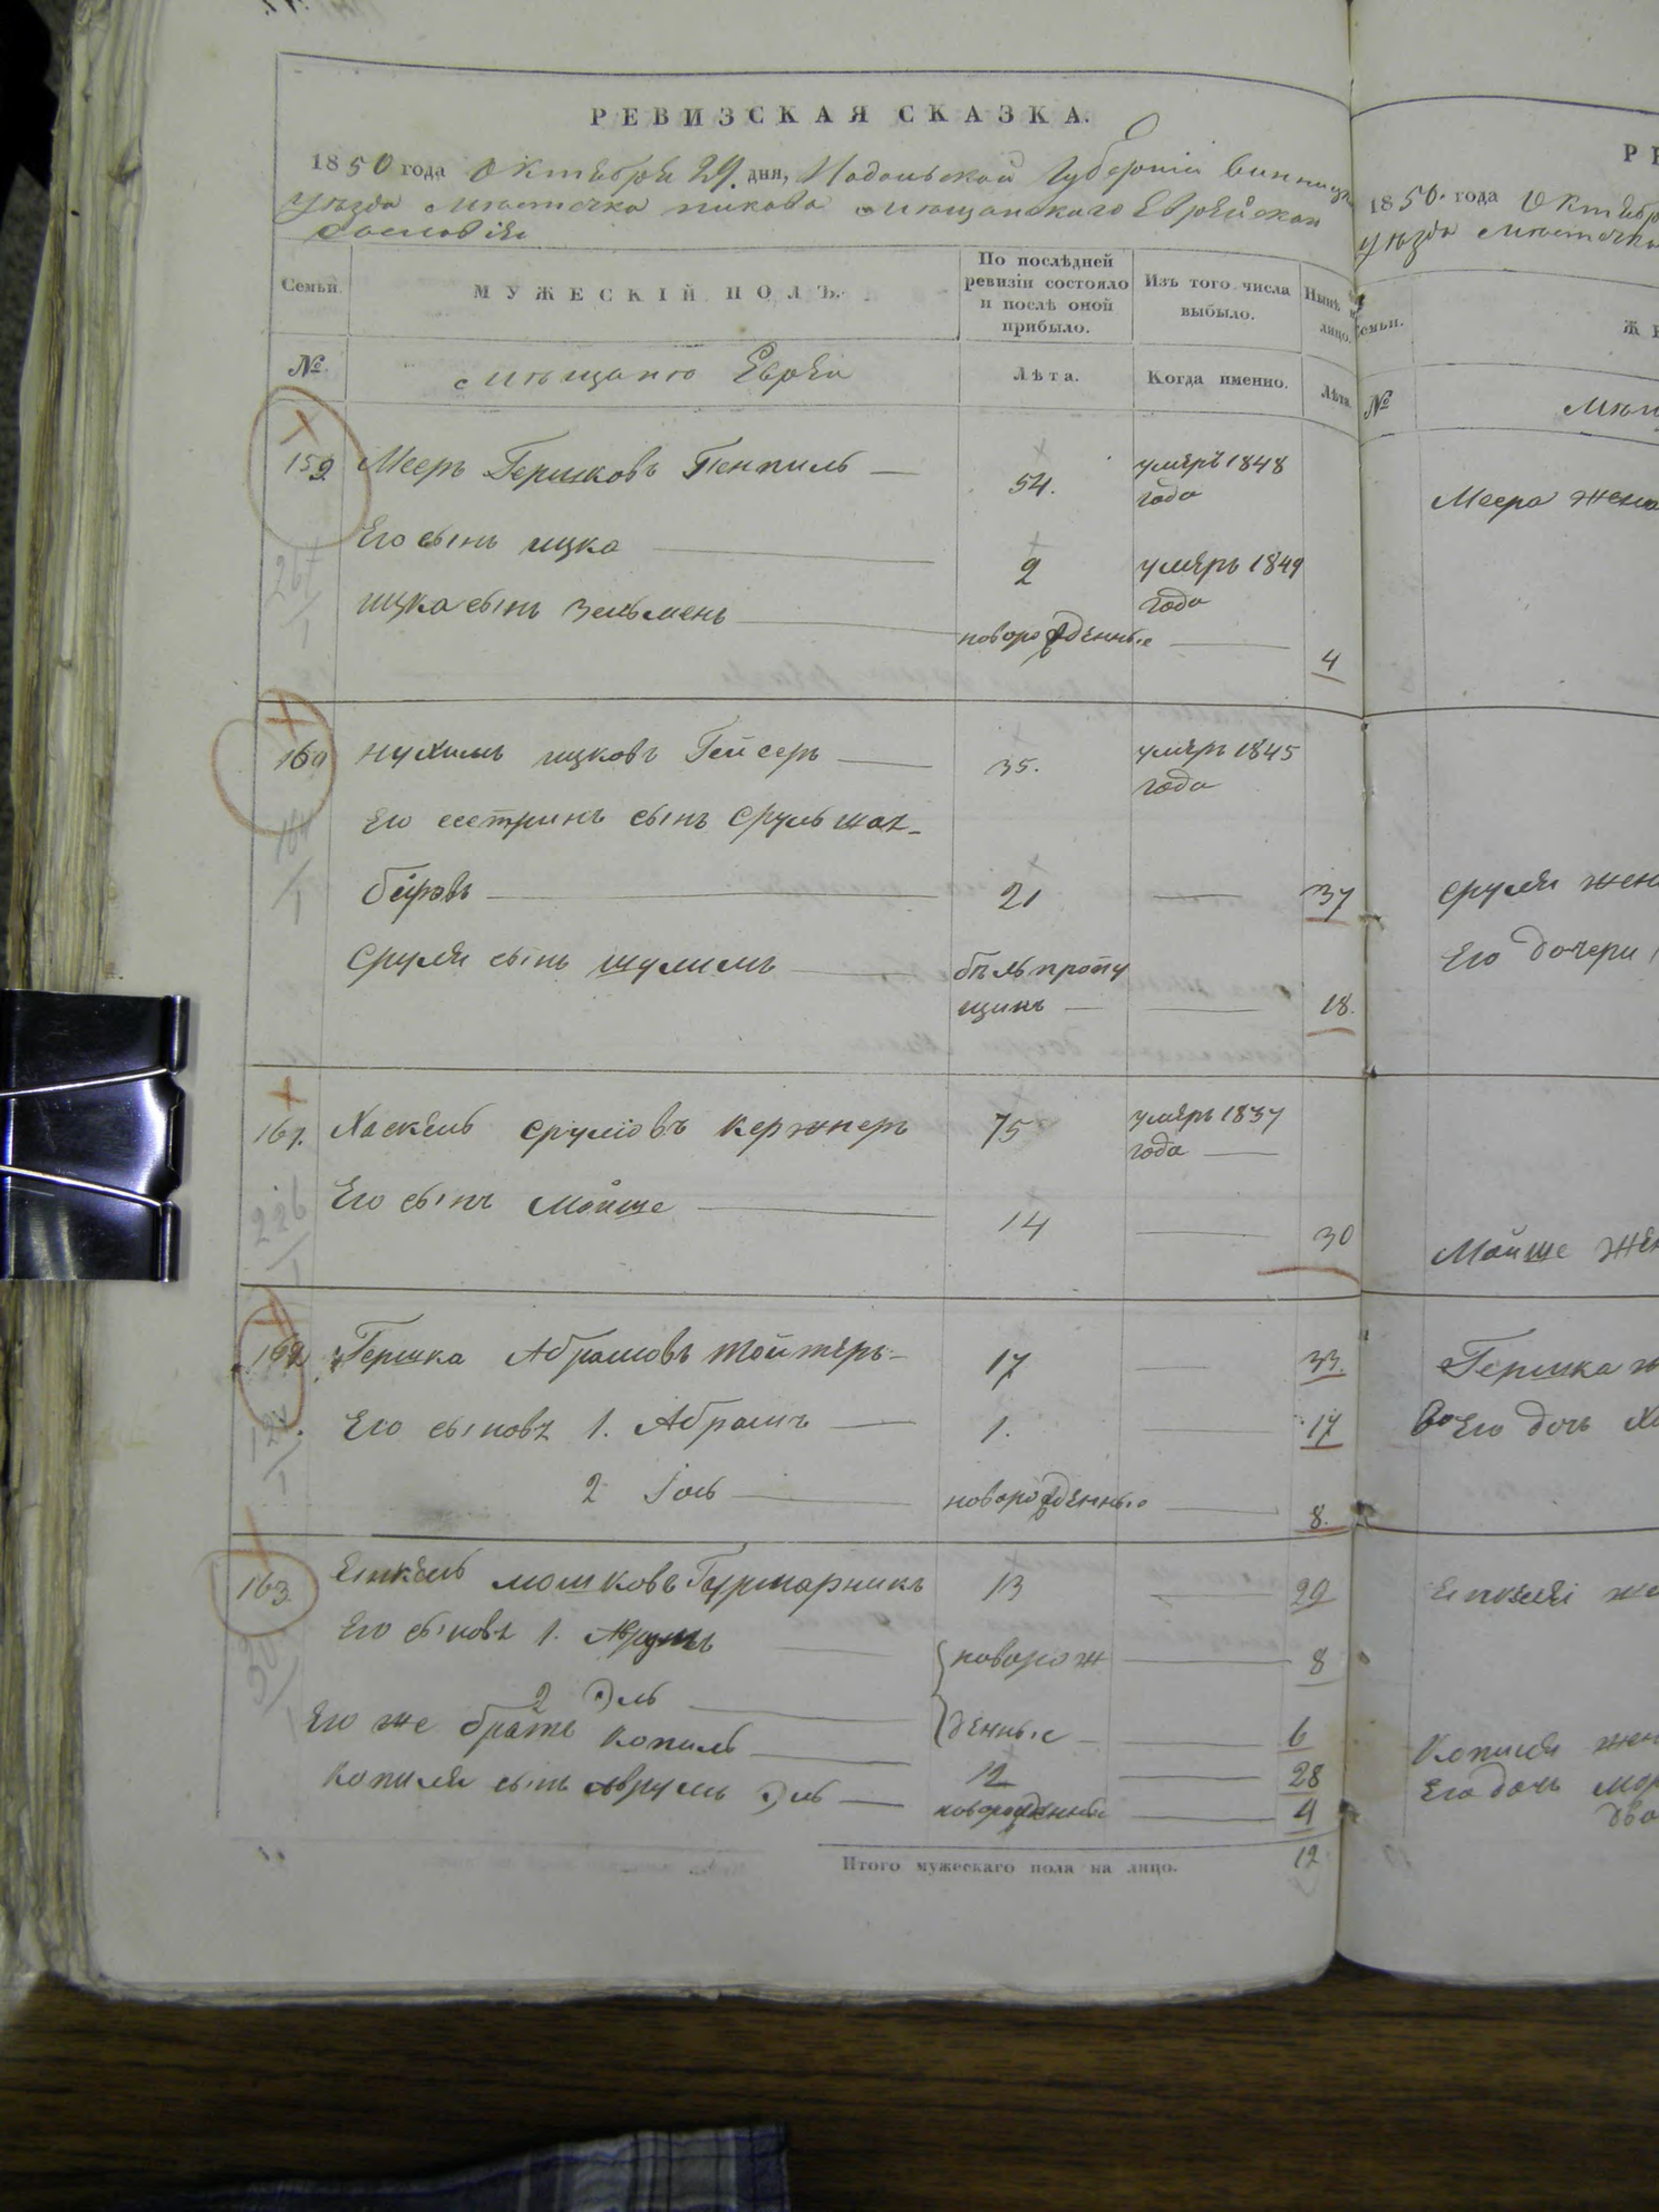 РЕВИЗСКАЯ СКАЗКА.
1850 года Октября 29. дня, Подольской Губерніи Винниц
уѣзда мѣстечка Пикова мѣщанскаго Еврейскаго
сословія
Семьи.
МУЖЕСКІЙ ПОЛЪ.
По послѣдней ревизіи состояло и послѣ оной прибыло.
Изъ того числа выбыло.
Нынѣ на лицо.
№.
мѣщане Евреи
Лѣта.
Когда именно.
Лѣта.
159 Мееръ Гершковъ 54. умеръ 1848
года
Его сынъ ицко 2 умеръ 1849
года
ицка сынъ Зельменъ новорожденные 4
160 нухимъ ицковъ Гейсеръ 35. умеръ 1845
года
Его сестринъ сынъ Сруль
21 37
Сруля сынъ шулимъ былъ пропу
щинъ 18.
161. Хаскель срулiовъ кержнеръ 75 умеръ 1837
года
Его сынъ Мойше 14 30
162 Гершка Абрамовъ Тойтеръ 17 33.
Его сыновъ 1. Абрамъ 1. 17
2 Iось новорожденные 8.
163. Янкель мошковъ 13 29
Его сыновъ 1. новорож 8
2 Эль денные 6
Его же братъ Копель 12 28
Копеля сынъ Аврумъ Эль новорожденные 4
Итого мужескаго пола на лицо. 12
РЕ
1850. года Октябр
уѣзда мѣстечка
Семьи.
Ж
№
мѣщ
Меера жена
Сруля жен
Его дочери
Мойше жен
Гершка ж
Его дочь
Янкеля же
Копеля жен
Его дочь